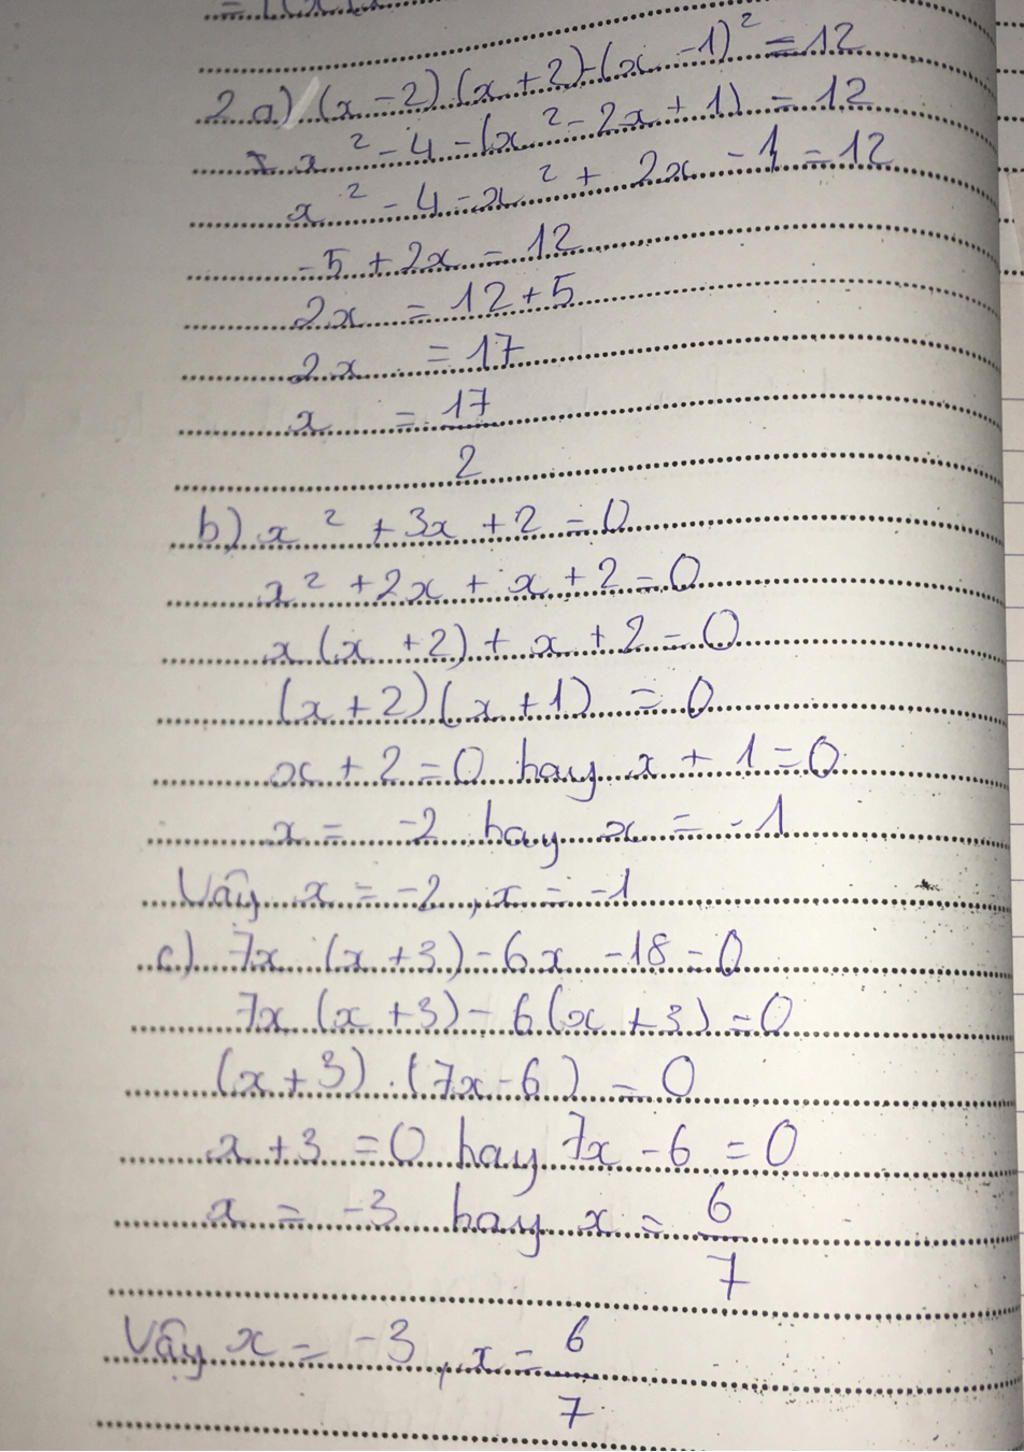 2 a) (x - 2) (x + 2) - (x - 1)² = 12
x² - 4 - (x² - 2x + 1) = 12
x² - 4 - x² + 2x - 1 = 12
-5 + 2x = 12
2x = 12 + 5
2x = 17
x = 17/2
b) x² + 3x + 2 = 0
x² + 2x + x + 2 = 0
x (x + 2) + x + 2 = 0
(x + 2) (x + 1) = 0
x + 2 = 0 hay x + 1 = 0
x = -2 hay x = -1
Vậy x = -2, x = -1
c) 7x (x + 3) - 6x - 18 = 0
7x (x + 3) - 6 (x + 3) = 0
(x + 3) . (7x - 6) = 0
x + 3 = 0 hay 7x - 6 = 0
x = -3 hay x = 6/7
Vây x = -3, x = 6/7